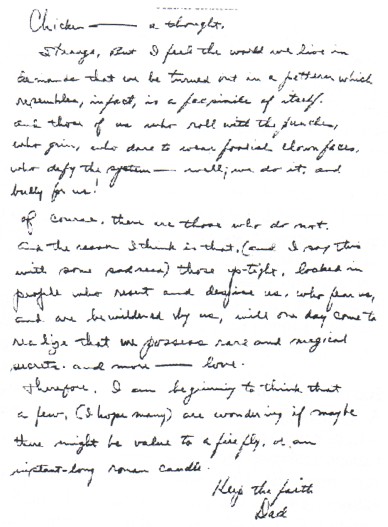 Chicken — a thought.
Strange, But I feel the world we live in
demands that we be turned out in a pattern which
resembles, in fact, is a facsimile of itself.
And those of us who roll with the punches,
who grin, who dare to wear foolish clown faces,
who defy the system — well, we do it, and
bully for us!
Of course, there are those who do not.
And the reason I think is that, (and I say this
with some sadness) those up-tight, locked in
people who resent and despise us, who fear us,
and are bewildered by us, will one day come to
realize that we possess rare and magical
secrets. and more — love.
Therefore, I am beginning to think that
a few, (I hope many) are wondering if maybe
there might be value to a firefly, or an
instant-long roman candle.
Keep the faith
Dad